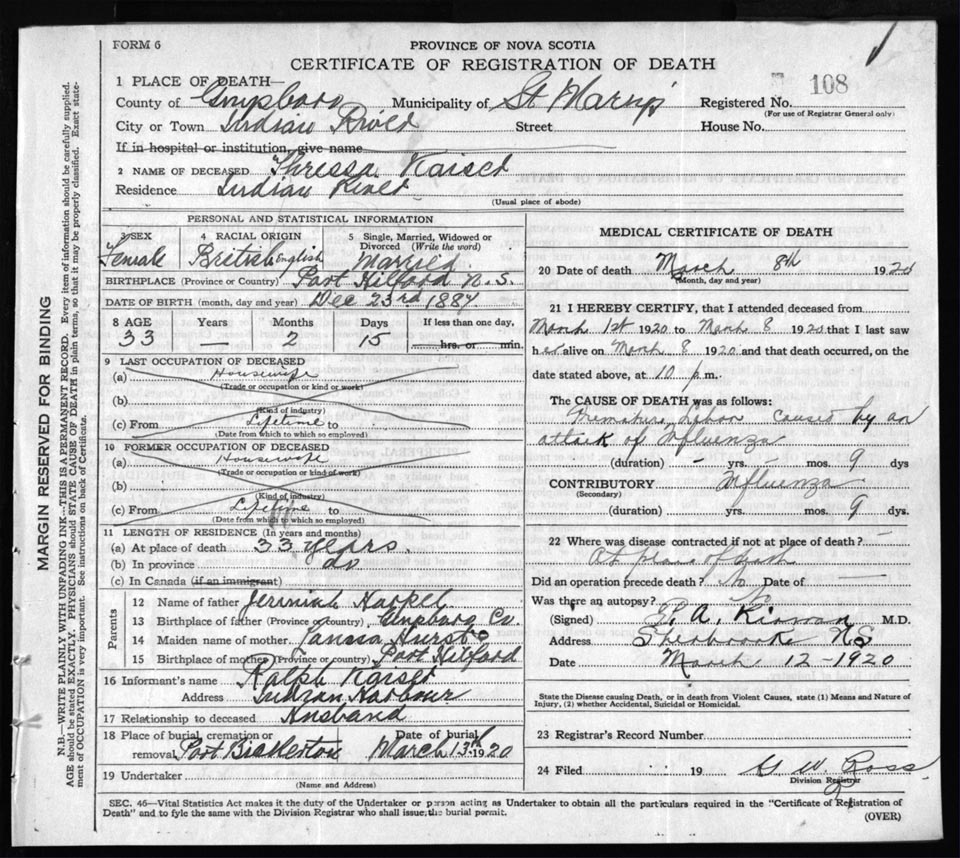 FORM 6
PROVINCE OF NOVA SCOTIA
CERTIFICATE OF REGISTRATION OF DEATH
1 PLACE OF DEATH—
County of Guysboro Municipality of St Marys Registered No. 108
(For use of Registrar General only)
City or Town Indian River Street House No.
If in hospital or institution, give name
2 NAME OF DECEASED Thressa Kaiser
Residence Indian River
(Usual place of abode)
PERSONAL AND STATISTICAL INFORMATION
3 SEX Female
4 RACIAL ORIGIN British English
5 Single, Married, Widowed or Divorced (Write the word) Married
BIRTHPLACE (Province or Country) Port Hilford N.S.
DATE OF BIRTH (month, day and year) Dec 23rd 1887
8 AGE Years Months Days If less than one day,
33 — 2 15 hrs. or min.
9 LAST OCCUPATION OF DECEASED
(a) Housewife
(Trade or occupation or kind or work)
(b)
(Kind of industry)
(c) From Lifetime to
(Date from which to which so employed)
10 FORMER OCCUPATION OF DECEASED
(a) Housewife
(Trade or occupation or kind of work)
(b)
(Kind of industry)
(c) From Lifetime to
(Date from which to which so employed)
11 LENGTH OF RESIDENCE (In years and months)
(a) At place of death 33 years.
(b) In province do
(c) In Canada (if an immigrant)
Parents
12 Name of father Jerimiah Harpel
13 Birthplace of father (Province or country) Guysboro Co.
14 Maiden name of mother Hurst
15 Birthplace of mother (Province or country) Port Hilford
16 Informant's name Ralph Kaiser
Address Indian Harbour
17 Relationship to deceased Husband
18 Place of burial, cremation or removal Port Bickerton Date of burial March 13th 1920
19 Undertaker
(Name and Address)
MEDICAL CERTIFICATE OF DEATH
20 Date of death March 8th 1920
(Month, day and year)
21 I HEREBY CERTIFY, that I attended deceased from
March 1st 1920 to March 8 1920 that I last saw
her alive on March 8 1920 and that death occurred, on the
date stated above, at 10 p.m.
The CAUSE OF DEATH was as follows:
Premature Labor caused by an
attack of Influenza
(duration) – yrs. – mos. 9 dys
CONTRIBUTORY Influenza
(Secondary)
(duration) yrs. mos. 9 dys.
22 Where was disease contracted if not at place of death? —
At place of death
Did an operation precede death? No Date of —
Was there an autopsy? No
(Signed) P. A. M.D.
Address Sherbrooke NS
Date March 12 - 1920
State the Disease causing Death, or in death from Violent Causes, state (1) Means and Nature of
Injury, (2) whether Accidental, Suicidal or Homicidal.
23 Registrar's Record Number
24 Filed 19 G W Ross
Division Registrar
SEC. 46—Vital Statistics Act makes it the duty of the Undertaker or person acting as Undertaker to obtain all the particulars required in the "Certificate of Registration of
Death" and to fyle the same with the Division Registrar who shall issue the burial permit. (OVER)
MARGIN RESERVED FOR BINDING
N.B.—WRITE PLAINLY WITH UNFADING INK—THIS IS A PERMANENT RECORD. Every item of information should be carefully supplied.
AGE should be stated EXACTLY. PHYSICIANS should STATE CAUSE OF DEATH in plain terms, so that it may be properly classified. Exact state-
ment of OCCUPATION is very important. See instructions on back of Certificate.